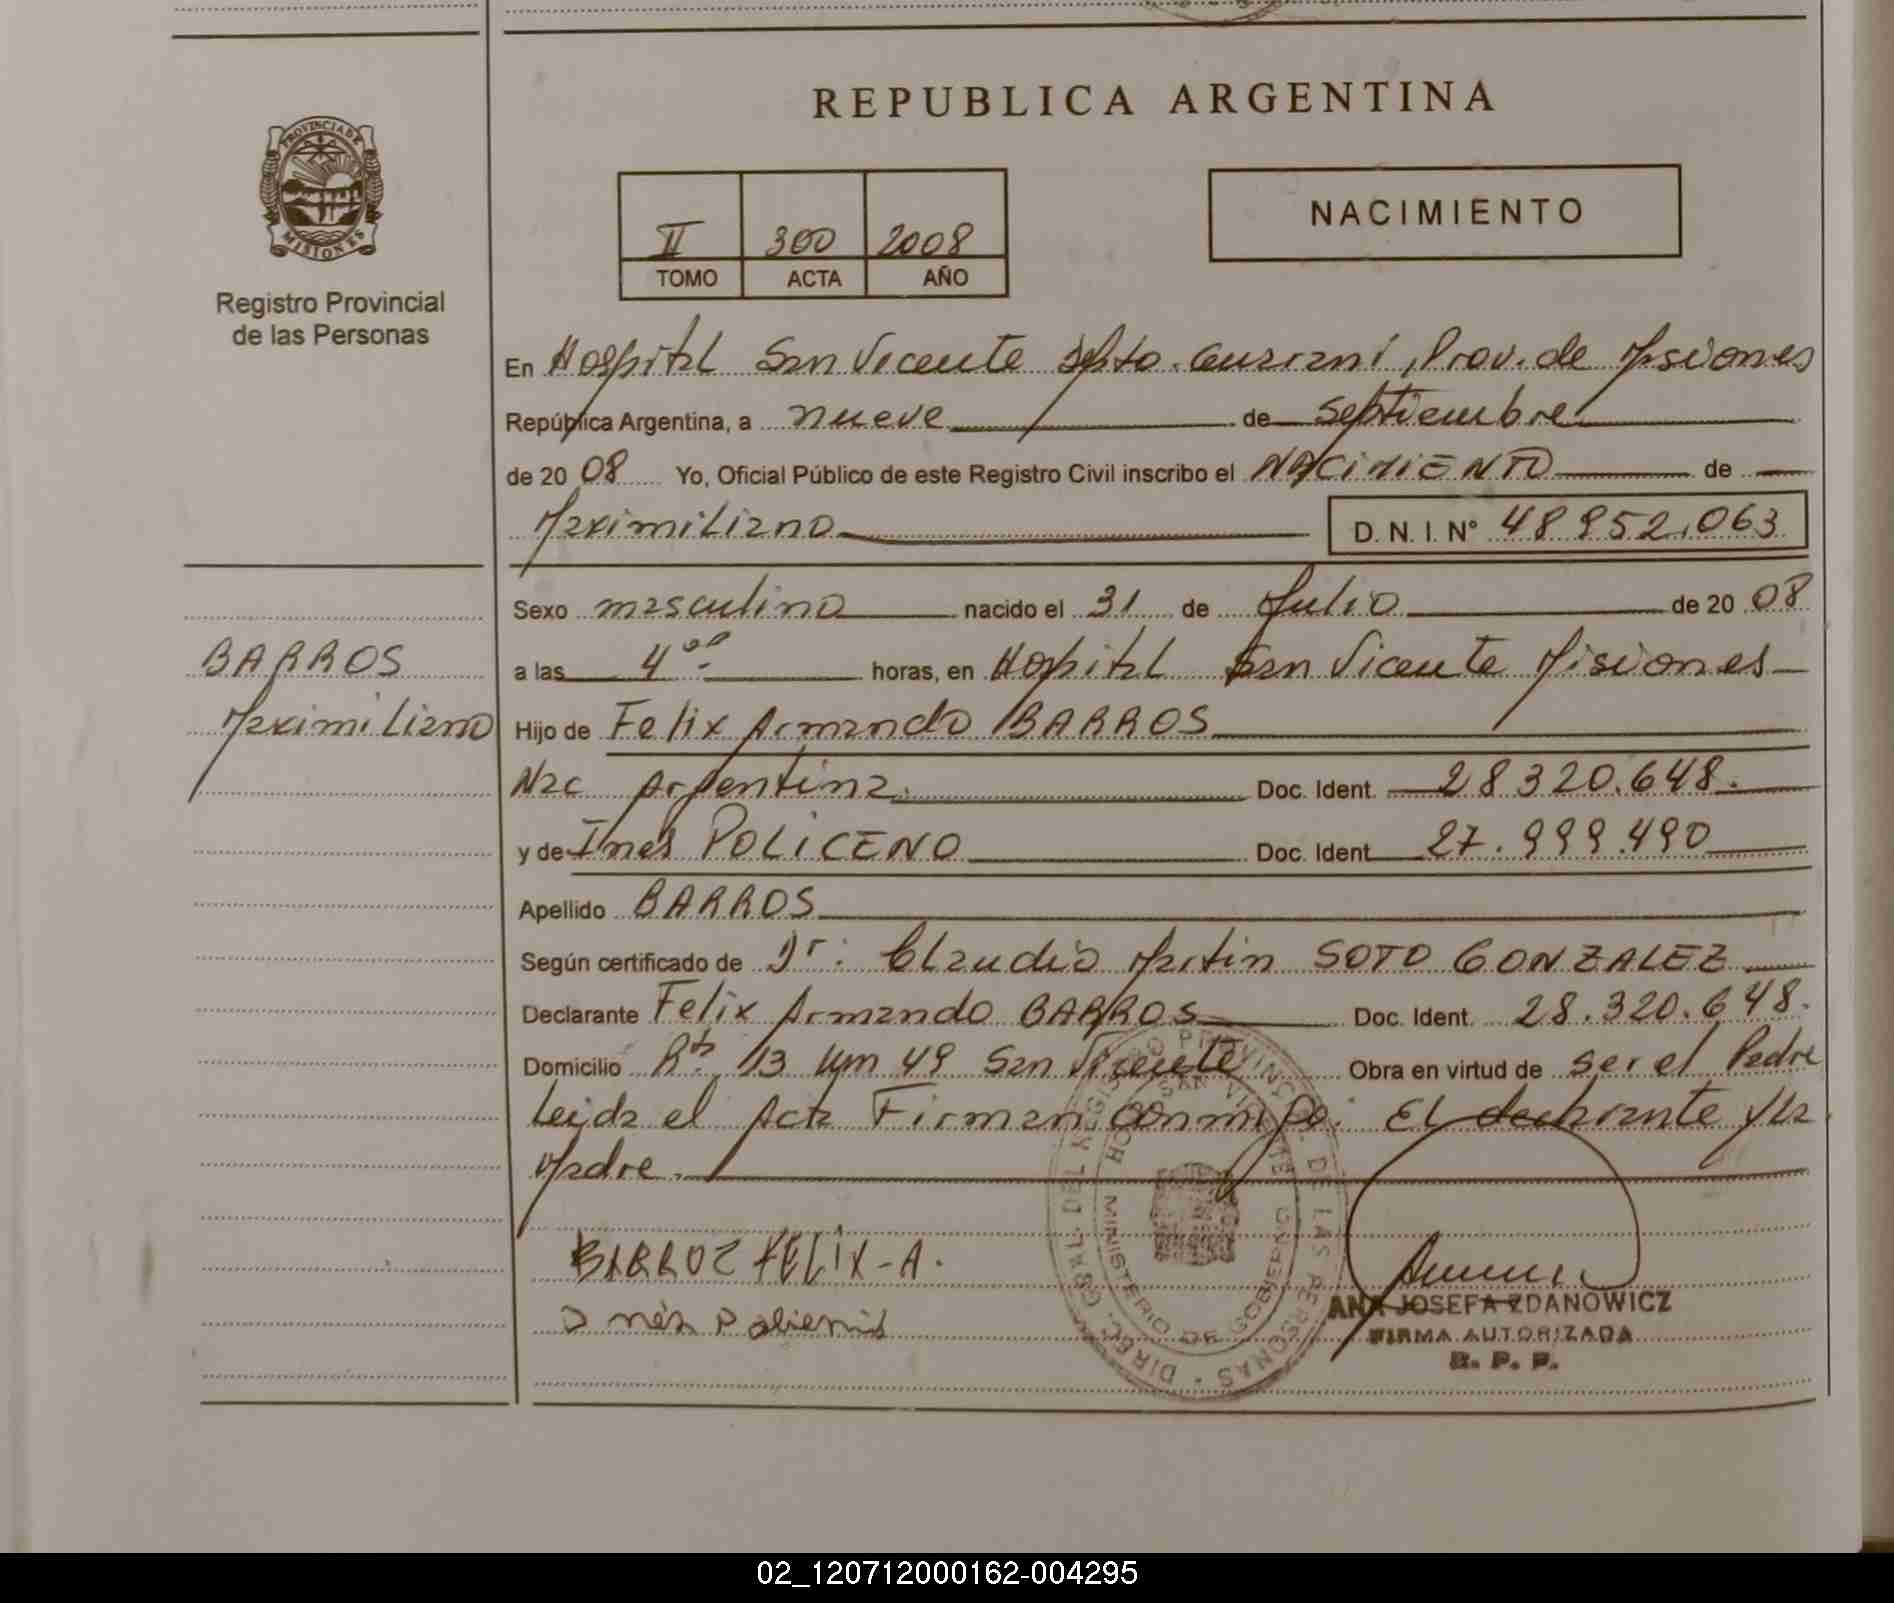 REPUBLICA ARGENTINA
PROVINCIA DE
MISIONES
Registro Provincial
de las Personas
II 300 2008
TOMO ACTA AÑO
NACIMIENTO
En Hospital San Vicente Dpto. Guarani, Prov. de Misiones
República Argentina, a nueve de septiembre
de 2008 Yo, Oficial Público de este Registro Civil inscribo el NACIMIENTO de
Maximiliano D. N. I. N° 48952.063
Sexo masculino nacido el 31 de Julio de 2008
a las 4 horas, en Hospital San Vicente Misiones
Hijo de Felix Armando BARROS
Nac Argentina. Doc. Ident. 28320.648.
y de Ines POLICENO Doc. Ident 27.999.490
Apellido BARROS
Según certificado de Dr: Claudio Martin SOTO GONZALEZ
Declarante Felix Armando BARROS Doc. Ident. 28.320.648.
Domicilio Rta. 13 km 49 San Vicente Obra en virtud de ser el Padre
Leida el Acta Firman conmigo: El declarante y la
Madre.
BARROS
Maximiliano
BARROZ FELIX-A.
DIREC. GRAL. DEL REGISTRO PROVINC. DE LAS PERSONAS
HOSP. SAN VICENTE
MINISTERIO DE GOBIERNO
ANA JOSEFA ZDANOWICZ
FIRMA AUTORIZADA
R. P. P.
02_120712000162-004295